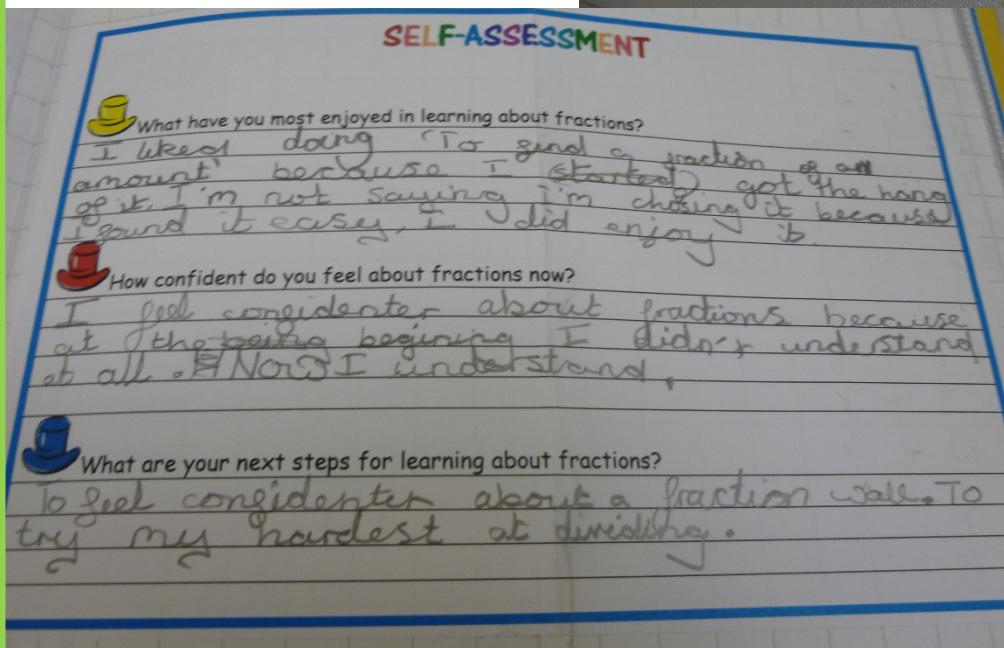 SELF-ASSESSMENT
What have you most enjoyed in learning about fractions?
I liked doing 'To find a fraction of an
amount' because I started got the hang
of it. I'm not saying I'm chosing it because
I found it easy, I did enjoy it.
How confident do you feel about fractions now?
I feel confidenter about fractions because
at the being begining I didn't understand
at all. Now I understand.
What are your next steps for learning about fractions?
To feel confidenter about a fraction wall. To
try my hardest at dividing.